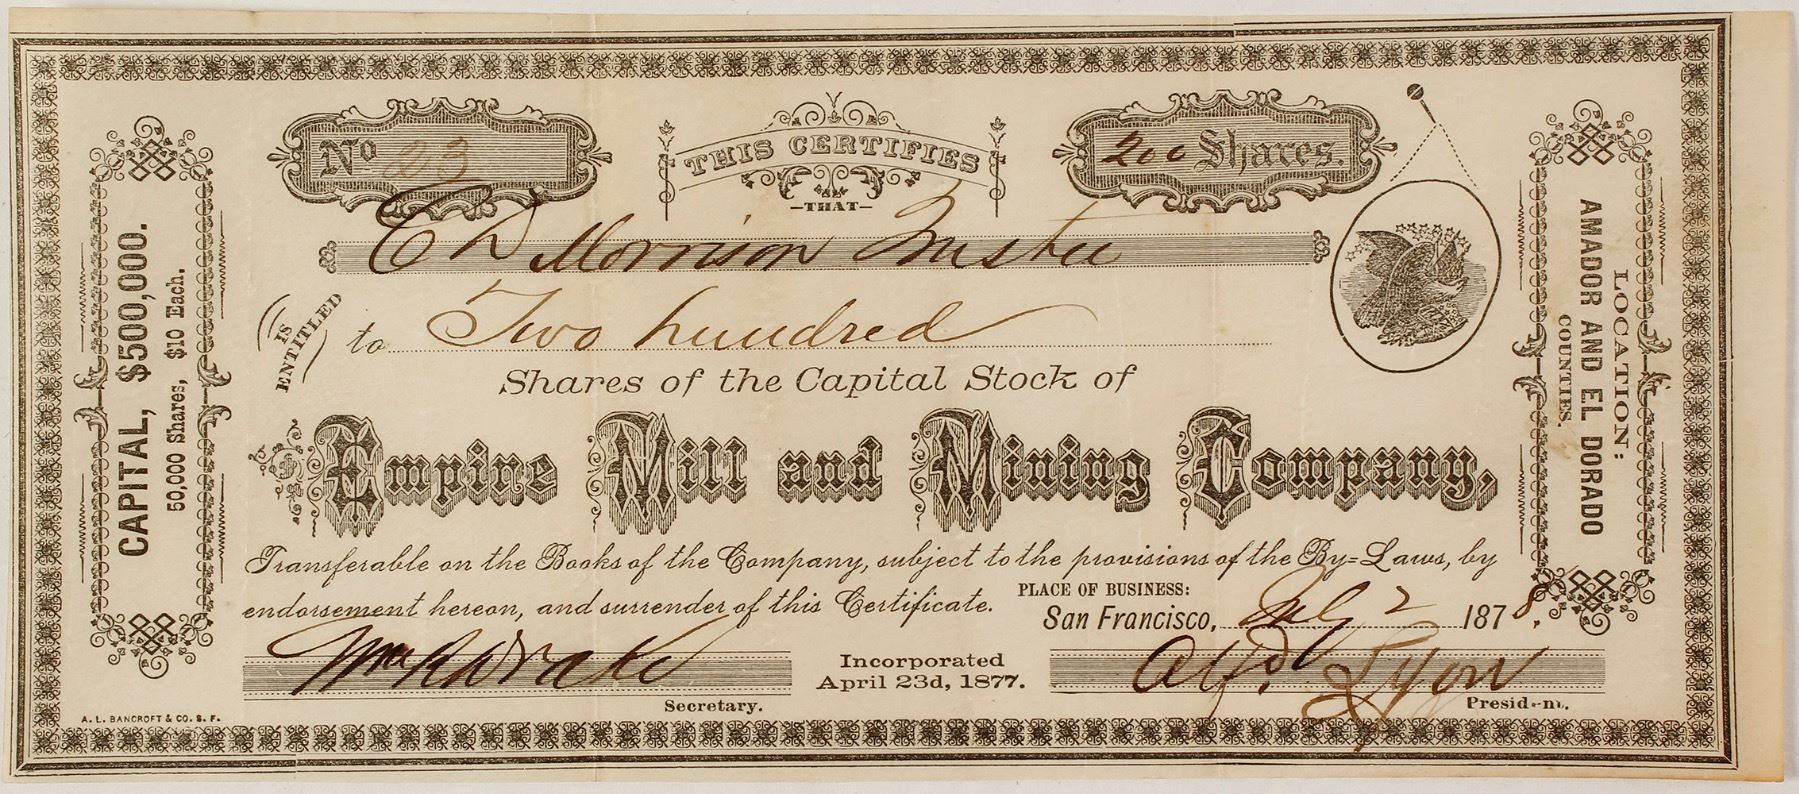 No 23
THIS CERTIFIES
—THAT—
200 Shares.
E D Morrison Trustee
IS ENTITLED to Two hundred
Shares of the Capital Stock of
Empire Mill and Mining Company,
Transferable on the Books of the Company, subject to the provisions of the By=Laws, by
endorsement hereon, and surrender of this Certificate.
PLACE OF BUSINESS:
San Francisco, July 2 1878.
Secretary.
Incorporated
April 23d, 1877.
Alfd. Lyon
President.
CAPITAL, $500,000.
50,000 Shares, $10 Each.
LOCATION:
AMADOR AND EL DORADO
COUNTIES.
A. L. BANCROFT & CO. S. F.